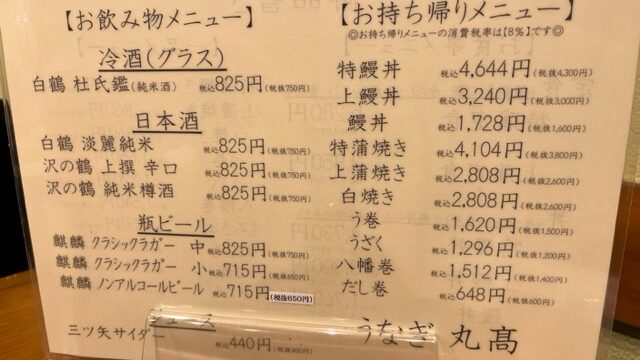 【お飲み物メニュー】
冷酒(グラス)
白鶴 杜氏鑑(純米酒) 税込825円(税抜750円)
日本酒
白鶴 淡麗純米 税込825円(税抜750円)
沢の鶴 上撰 辛口 税込825円(税抜750円)
沢の鶴 純米樽酒 税込825円(税抜750円)
瓶ビール
麒麟 クラシックラガー 中 税込825円(税抜750円)
麒麟 クラシックラガー 小 税込715円(税抜650円)
麒麟 ノンアルコールビール 税込715円(税抜650円)
ジュース
三ツ矢サイダー 税込440円(税抜400円)
【お持ち帰りメニュー】
◎お持ち帰りメニューの消費税率は【8%】です◎
特鰻丼 税込4,644円(税抜4,300円)
上鰻丼 税込3,240円(税抜3,000円)
鰻丼 税込1,728円(税抜1,600円)
特蒲焼き 税込4,104円(税抜3,800円)
上蒲焼き 税込2,808円(税抜2,600円)
白焼き 税込2,808円(税抜2,600円)
う巻 税込1,620円(税抜1,500円)
うざく 税込1,296円(税抜1,200円)
八幡巻 税込1,512円(税抜1,400円)
だし巻 税込648円(税抜600円)
うなぎ 丸髙